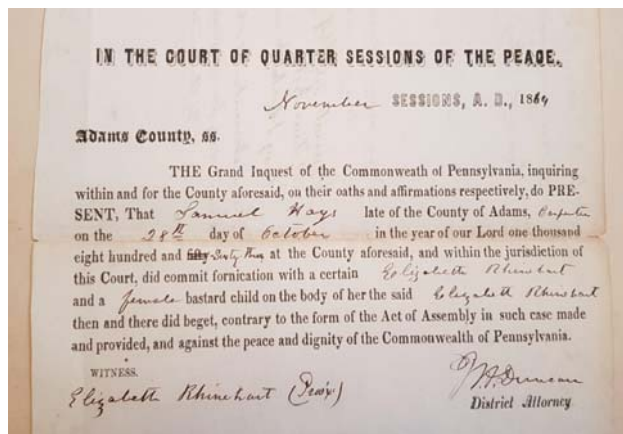 IN THE COURT OF QUARTER SESSIONS OF THE PEACE.
November SESSIONS, A. D., 1864
Adams County, ss.
THE Grand Inquest of the Commonweath of Pennsylvania, inquiring
within and for the County aforesaid, on their oaths and affirmations respectively, do PRE-
SENT, That Samuel Hays late of the County of Adams, Carpenter
on the 28th day of October in the year of our Lord one thousand
eight hundred and fifty Sixty Three at the County aforesaid, and within the jurisdiction of
this Court, did commit fornication with a certain Elizabeth Rhinehart
and a female bastard child on the body of her the said Elizabeth Rhinehart
then and there did beget, contrary to the form of the Act of Assembly in such case made
and provided, and against the peace and dignity of the Commonwealth of Pennsylvania.
WITNESS.
Elizabeth Rhinehart (Prox)
Duncan
District Attorney